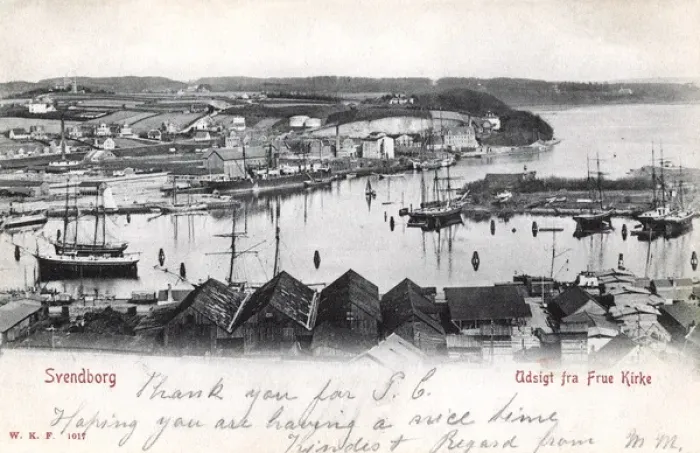 Svendborg
Udsigt fra Frue Kirke
Thank you for P.C.
Hoping you are having a nice time
Kindest Regard from M.M.
W. K. F. 1017